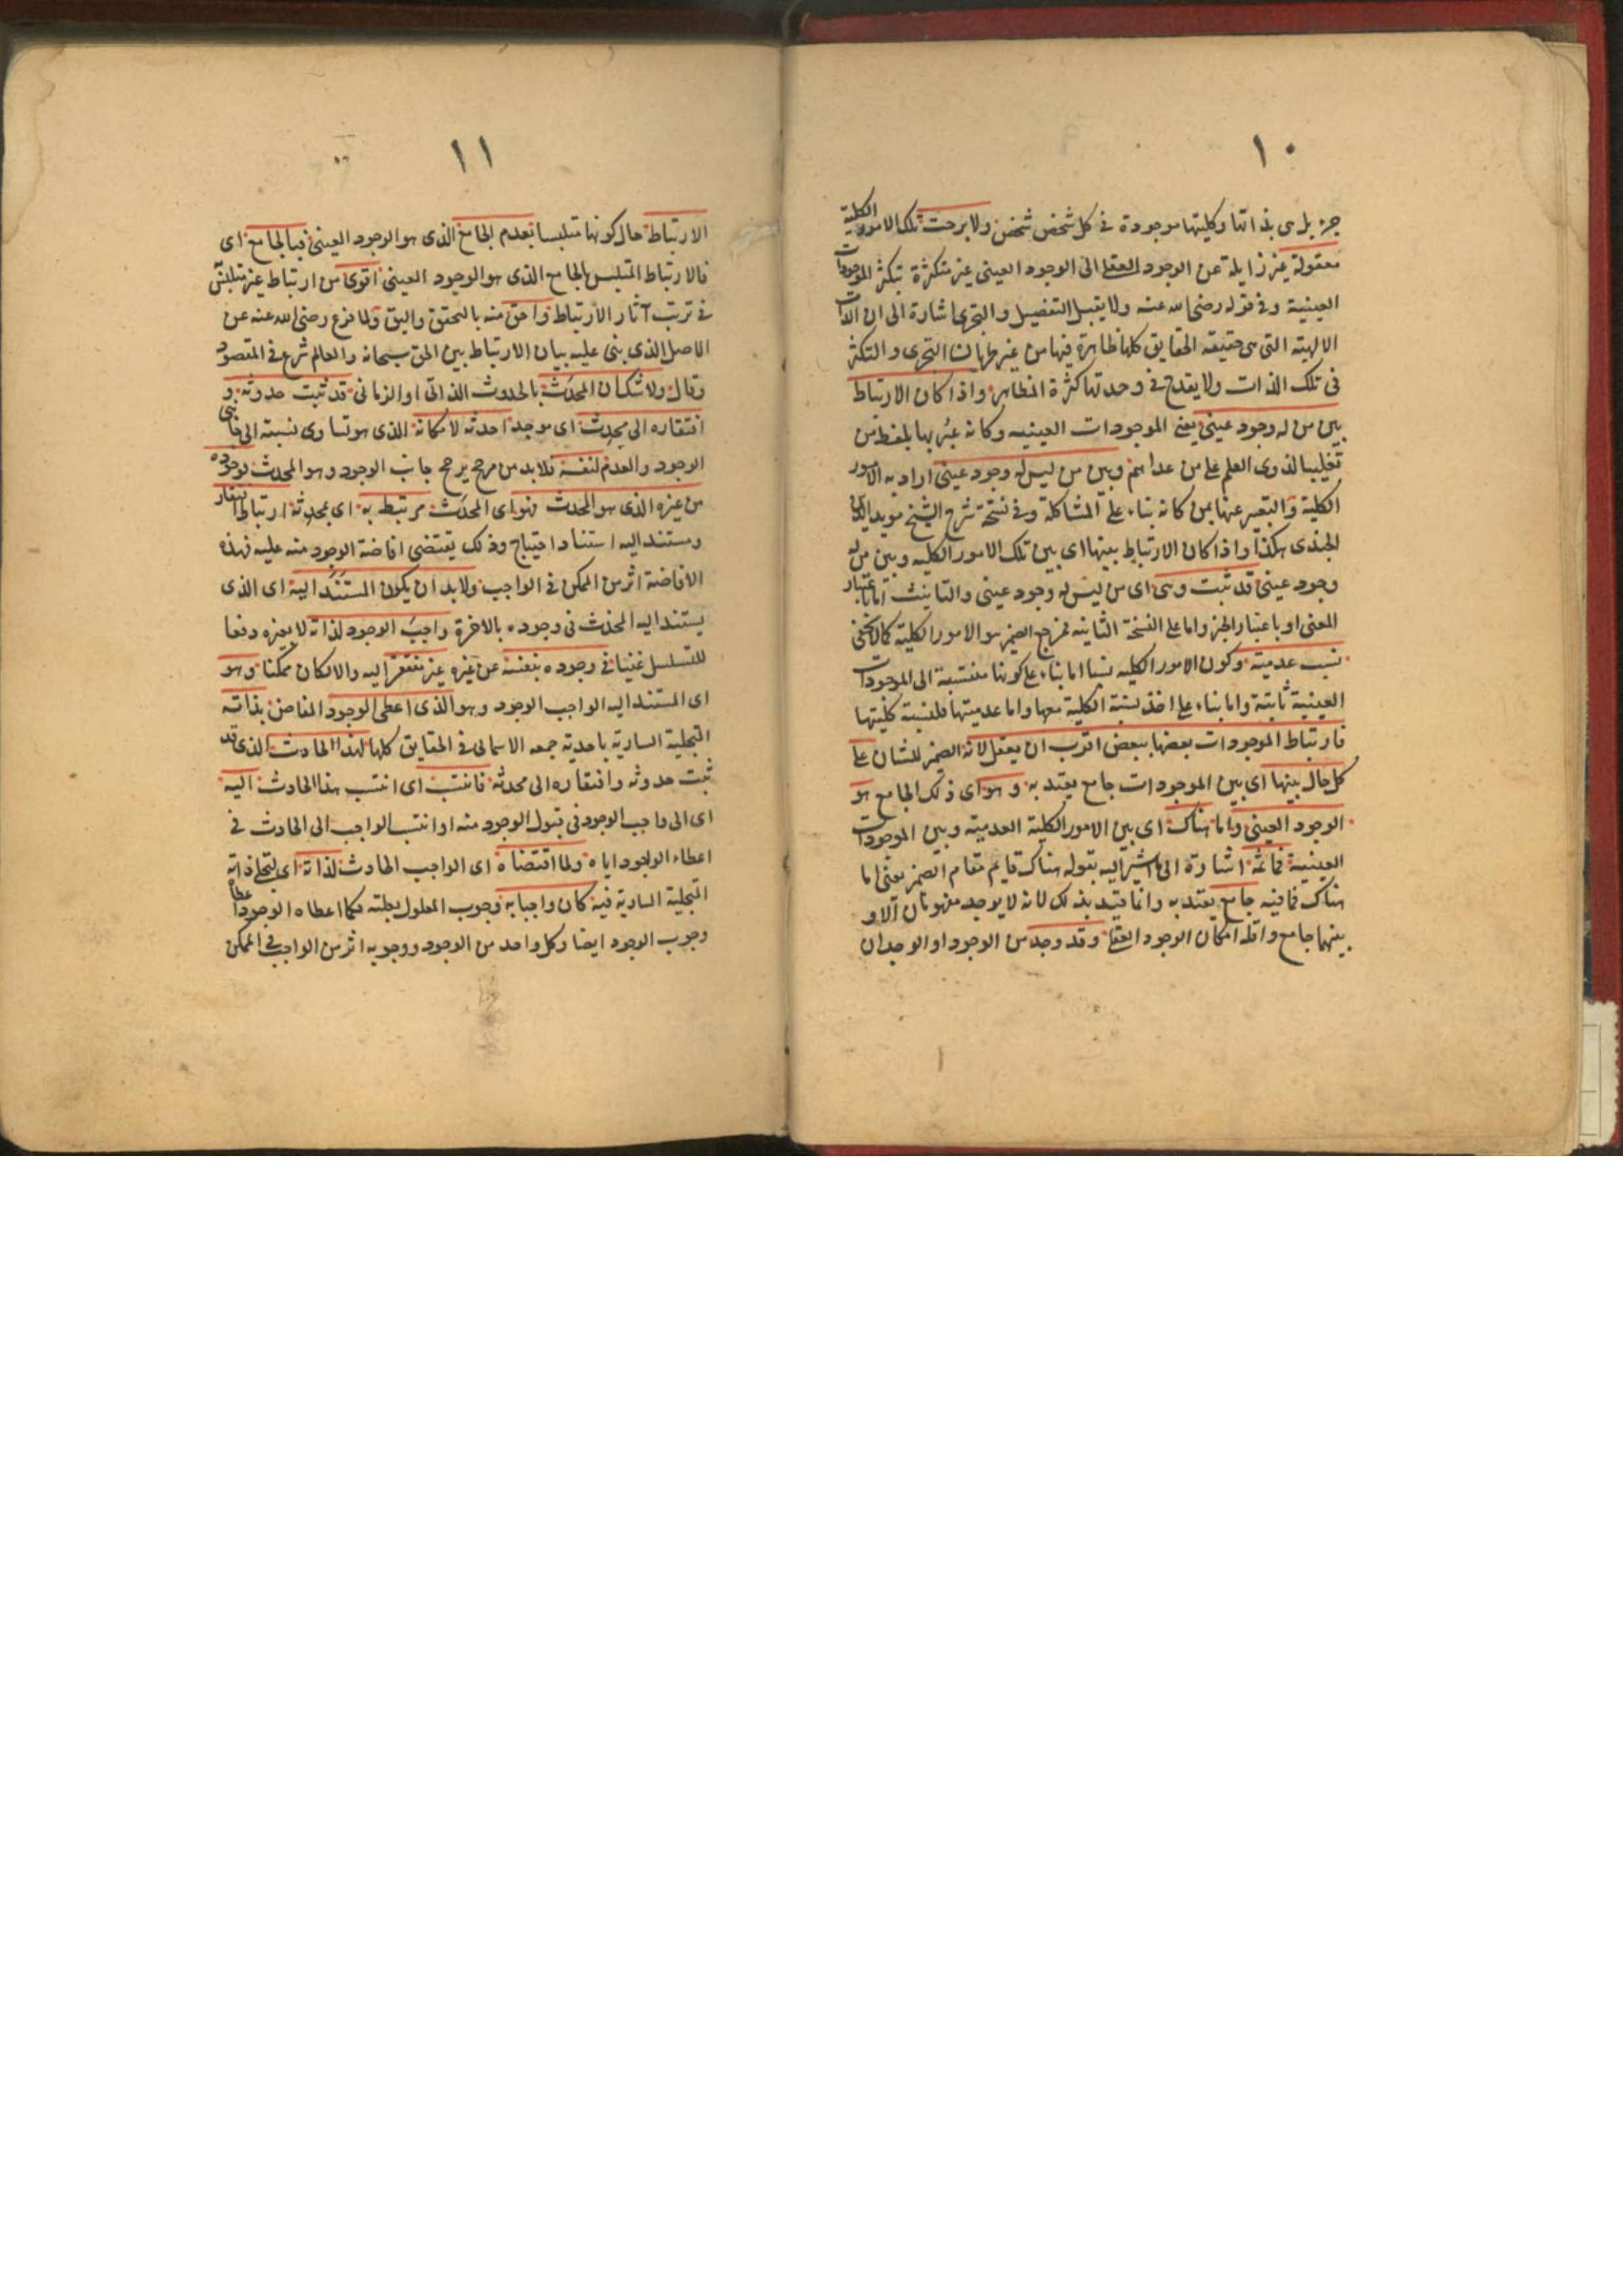 ١٠
جزء بل هى بذاتها وكليتها موجودة فى كل شخص شخص ولا برحت تلك الامور الكلية
معقولة غير زايلة عن الوجود العقلى الى الوجود العينى غير متكثرة بتكثر الموجودات
العينية وفى قوله رضى الله عنه ولا يقبل التفصيل والتجزى اشارة الى ان الذات
الالهية التى هى حقيقة الحقايق كلها ظاهرة فيها من غير طريان التجزى والتكثر
فى تلك الذات ولا يقدح فى وحدتها كثرة المظاهر واذا كان الارتباط
بين من له وجود عينى يعنى الموجودات العينيه وكانه عبر بها بلفظ من
تغليبا لذوى العلم على من عداهم وبين من ليس له وجود عينى اراد به الامور
الكلية والتعبير عنها بمن كانه بناء على المشاكلة وفى نسخة شرح الشيخ مويد الدين
الجندى هكذا واذا كان الارتباط بينها اى بين تلك الامور الكليه وبين من له
وجود عينى قد ثبت وهى اى من ليس له وجود عينى والتانيث اما باعتبار
المعنى او باعتبار الخبر واما على النسخة الثانيه فمرجع الضمير هو الامور الكلية كما لا يخفى
نسب عدمية وكون الامور الكليه نسبا اما بناء على كونها منتسبة الى الموجودات
العينية ثابتة واما بناء على اخذ نسبة الكلية معها واما عدميتها فلنسبة كليتها
فارتباط الموجودات بعضها ببعض اقرب ان يعقل لانه الضمير للشان على
كل حال بينها اى بين الموجودات جامع يعتد به وهو اى ذلك الجامع هو
الوجود العينى واما هناك اى بين الامور الكلية العدمية وبين الموجودات
العينية فما ثمه اشارة الى ما اشير اليه بقوله هناك قايم مقام الضمير يعنى اما
هناك فما فيه جامع يعتد به وانما قيد بذلك لانه لا يوجد مفهومان الا و
بينهما جامع واقله امكان الوجود العقلى وقد وجد من الوجود او الوجدان
١١
الارتباط حال كونها متلبسا بعدم الجامع الذى هو الوجود العينى فبالجامع اى
فالارتباط المتلبس بالجامع الذى هو الوجود العينى اقوى من ارتباط غير متلبس
فى ترتب آثار الارتباط واحق منه بالتحقق واليق ولما فرغ رضى الله عنه عن
الاصل الذى بنى عليه بيان الارتباط بين الحق سبحانه والعالم شرع فى المقصود
وقال ولا شك ان المحدث بالحدوث الذاتى او الزمانى قد ثبت حدوثه و
افتقاره الى محدث اى موجد احدثه لامكانه الذى هو تساوى نسبته الى جانبى
الوجود والعدم لنفسه فلا بد من مرجح يرجح جانب الوجود وهو المحدث فوجوده
من غيره الذى هو المحدث فهو اى المحدث مرتبط به اى بمحدثه ارتباط افتقار
ومستند اليه استناد احتياج وذلك يقتضى افاضة الوجود منه عليه فهذه
الافاضة اثر من الممكن فى الواجب ولا بد ان يكون المستند اليه اى الذى
يستند اليه المحدث فى وجوده بالاخرة واجب الوجود لذاته لا بغيره دفعا
للتسلسل غنيا فى وجوده بنفسه عن غيره غير مفتقر اليه والا لكان ممكنا وهو
اى المستند اليه الواجب الوجود وهو الذى اعطى الوجود الفاض بذاته
المتجلية السارية باحدية جمعه الاسمائى فى الحقايق كلها لهذا الحادث الذى قد
ثبت حدوثه وافتقاره الى محدثه فانتسب اى انتسب هذا الحادث اليه
اى الى واجب الوجود فى قبول الوجود منه او انتسب الواجب الى الحادث فى
اعطاء الوجود اياه ولما اقتضاه اى الواجب الحادث لذاته اى لتجلى ذاته
المتجلية السارية فيه كان واجبا به وجوب المعلول بعلته فكما اعطاه الوجود اعطاه
وجوب الوجود ايضا وكل واحد من الوجود ووجوبه اثر من الواجب فى الممكن